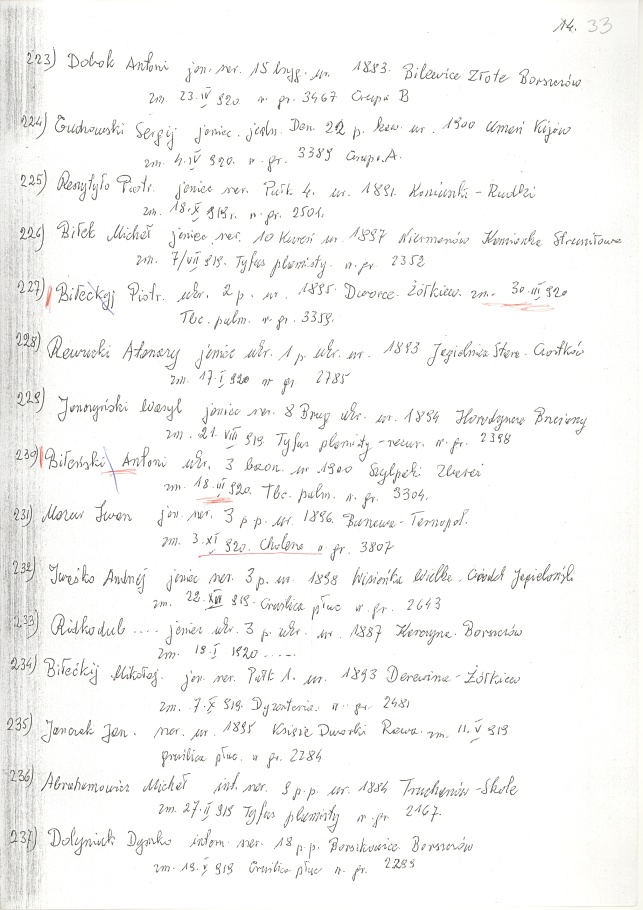 14. 33
223) Dobok Antoni jen. ner. 15 bryg. ur. 1883. Bilewice Złote Borszczów
zm. 23.IV 920 n gr. 3467 Grupa B
224) Sergij jeniec. Don. 22 p. ur. 1900 Umań Kijów
zm. 4.IV 920. n gr. 3389 Grupa A.
225) Piotr. jeniec ner. Pułk 4. ur. 1891. Koniuszki - Rudki
zm. 18.X 919 r. n gr. 2501.
226) Biłek Michał jeniec ner. 10 Kureń ur. 1897 Kamionka Strumiłowa
zm. 7/VII 919. Tyfus plamisty. n gr. 2352
227) Biłeckyj Piotr. ukr. 2 p. ur. 1895. Dworce. Żółkiew. zm. 30.III 920
Tbc. pulm. n gr. 3359.
228) Atanazy jeniec ukr. 1 p. ukr. ur. 1893 Jagielnica Stara. Czortków
zm. 17.I 920 n gr 2785
229) Wasyl jeniec ner. 8 Bryg ukr. ur. 1894 Brzeżany
zm. 21. VIII 919 Tyfus plamisty - recur. n. gr. 2398
230) Bileński Antoni ukr. 3 baon. ur 1900 Szylpaki Zbaraż
zm. 18.III 920. Tbc. pulm. n gr. 3304.
231) Mazur Iwan jen ner. 3 p. p. ur. 1896. Banewa - Ternopol.
zm. 3.XI 920. Cholera n gr. 3807
232) Iwaśko Andrej jeniec ner. 3 p. ur. 1898 Wisieńka Wielka. Gródek Jagielloński
zm. 22.XII 919. Gruźlica płuc n gr. 2643
233) Ridkodub .... jeniec ukr. 3 p. ukr. ur. 1887 Borszczów
zm. 19.I 1920 .....
234) Biłećkij Mikołaj. jen. ner. Pułk 1. ur. 1893 Derewnia - Żółkiew
zm. 7.X 919. Dyzenteria. n gr 2481
235) Janczak Jan. ner. ur. 1895 Księże Dworki Rawa. zm. 11.V 919
gruźlica płuc. n gr 2284
236) Abrahamowicz Michał int. ner. 9 p. p. ur. 1884 Truchanów - Skole
zm. 27.II 919 Tyfus plamisty n gr. 2167.
237) Dołyniuk Dymko intern. ner. 18 p. p. Borszczów
zm. 19.V 919 Gruźlica płuc n. gr. 2299